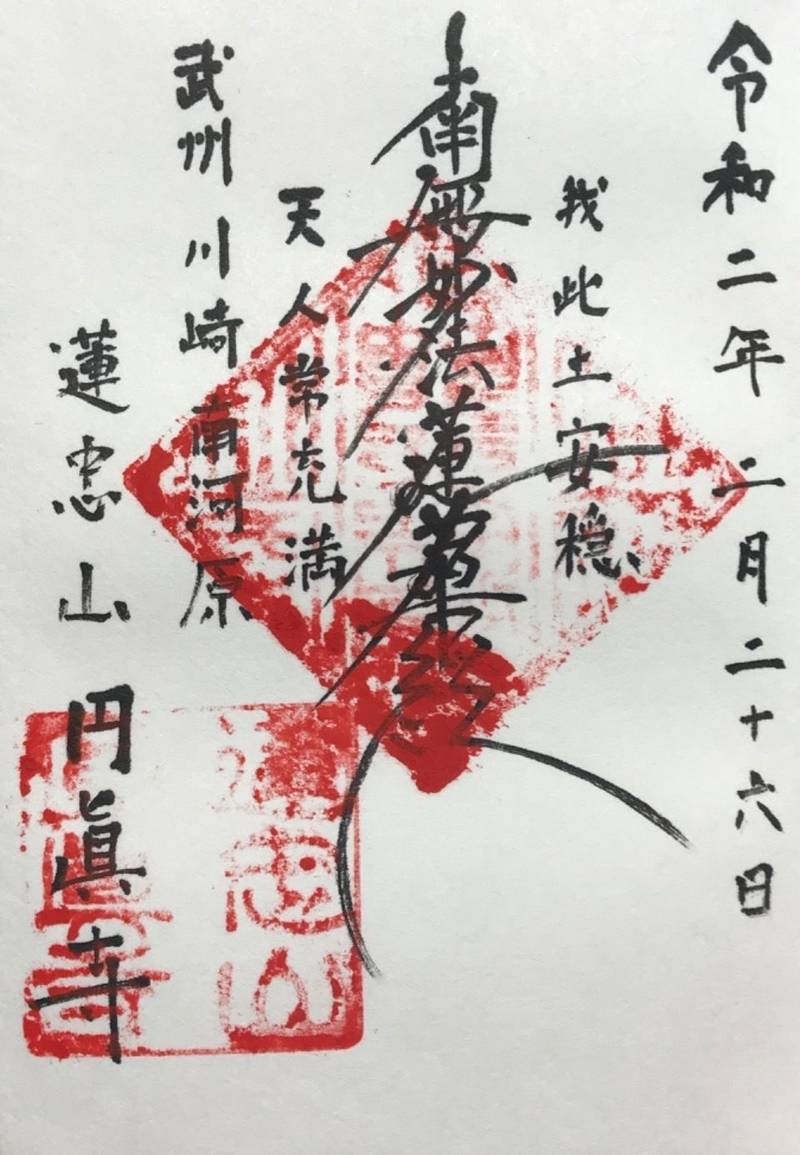 令和二年二月二十六日
我此土安穏
南無妙法蓮華経
天人常充満
武州川崎南河原
蓮忠山
円眞寺